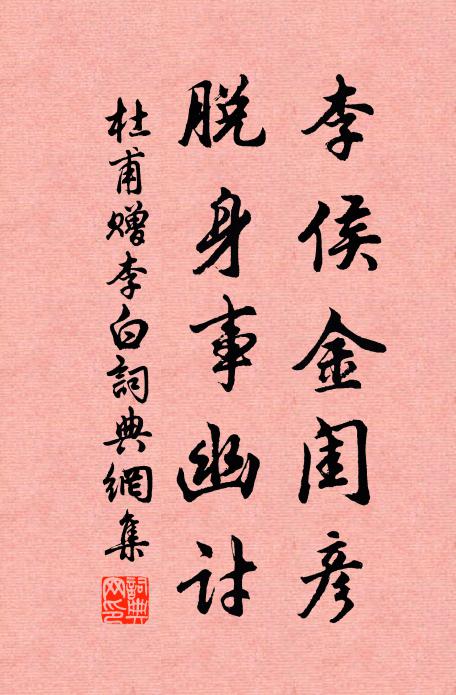 李侯金闺彦
脱身事幽讨
杜甫赠李白詞典網集
詞典网印